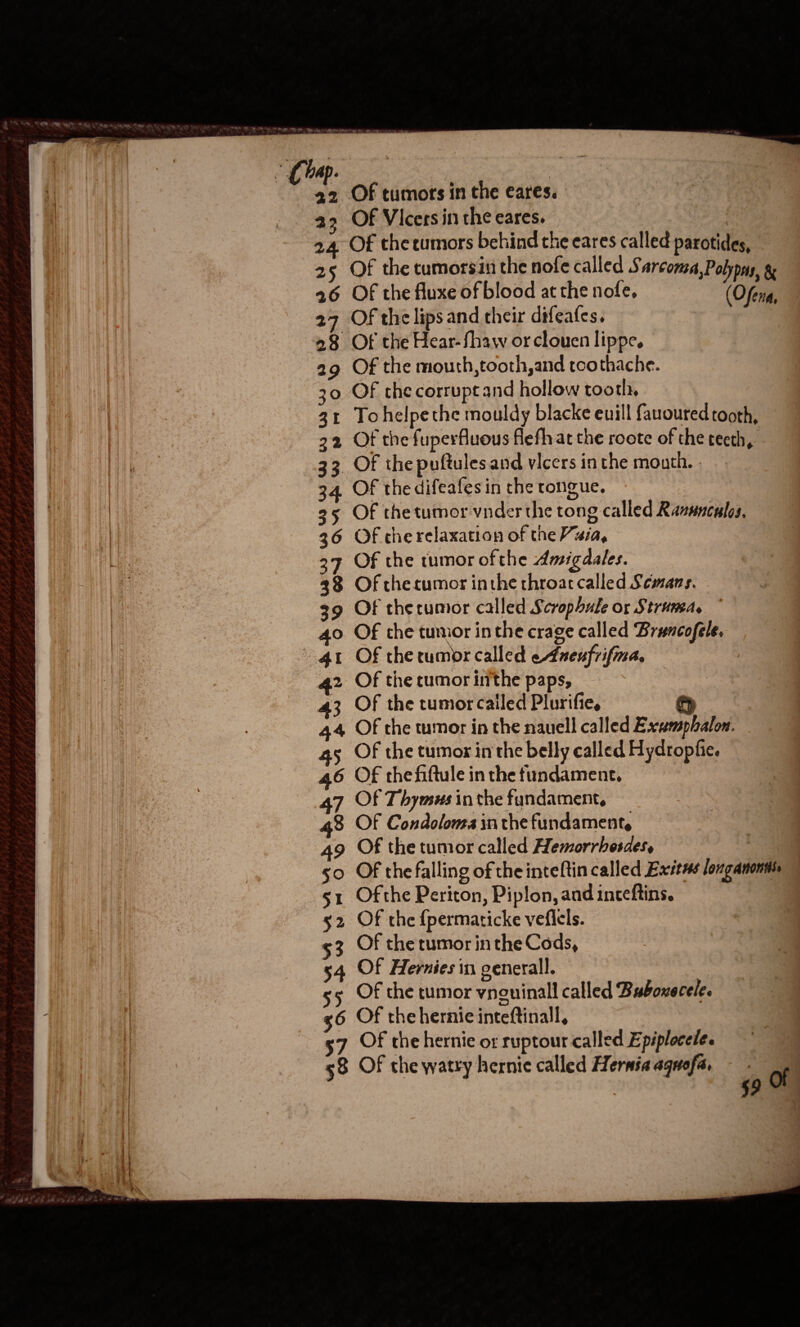 Chap.
22 Of tumors in the eares.
23 Of Vlcers in the eares.
24 Of the tumors behind the eares called parotides.
25 Of the tumors in the nose called Sarcoma, Polypus, &
26 Of the fluxe of blood at the nose. (Osena.
27 Of the lips and their diseases.
28 Of the Hear-shaw or clouen lippe.
29 Of the mouth, tooth, and toothache.
30 Of the corrupt and hollow tooth.
31 To helpe the mouldy blacke euill fauoured tooth.
32 Of the superfluous flesh at the roote of the teeth.
33 Of the pustules and vlcers in the mouth.
34 Of the diseases in the tongue.
35 Of the tumor vnder the tong called Ranunculos.
36 Of the relaxation of the Vuia.
37 Of the tumor of the Amigdales.
38 Of the tumor in the throat called Scinans.
39 Of the tumor called Scrophule or Struma.
40 Of the tumor in the crage called Bruncosele.
41 Of the tumor called Aneufrisma.
42 Of the tumor in the paps.
43 Of the tumor called Plurisie.
44 Of the tumor in the nauell called Exumphalon.
45 Of the tumor in the belly called Hydropsie.
46 Of the fistule in the fundament.
47 Of Thymus in the fundament.
48 Of Condoloma in the fundament.
49 Of the tumor called Hemorrhoides.
50 Of the falling of the intestin called Exitus longanonus.
51 Of the Periton, Piplon, and intestins.
52 Of the spermaticke vessels.
53 Of the tumor in the Cods.
54 Of Hernies in generall.
55 Of the tumor vnguinall called Bubonocele.
56 Of the hernie intestinall.
57 Of the hernie or ruptour called Epiplocele.
58 Of the watry hernie called Hernia aquosa.
59 Of